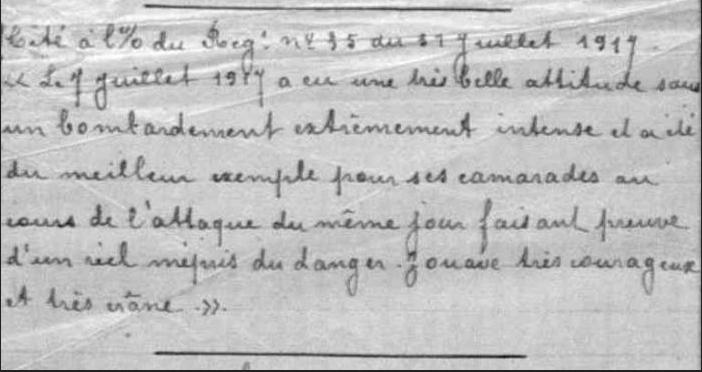 Cité à l'% du Reg! n° 35 du 31 Juillet 1917.
« Le 7 Juillet 1917 a eu une très belle attitude sous
un bombardement extrêmement intense et a été
du meilleur exemple pour ses camarades au
cours de l'attaque du même jour faisant preuve
d'un réel mépris du danger. Zouave très courageux
et très crâne ».